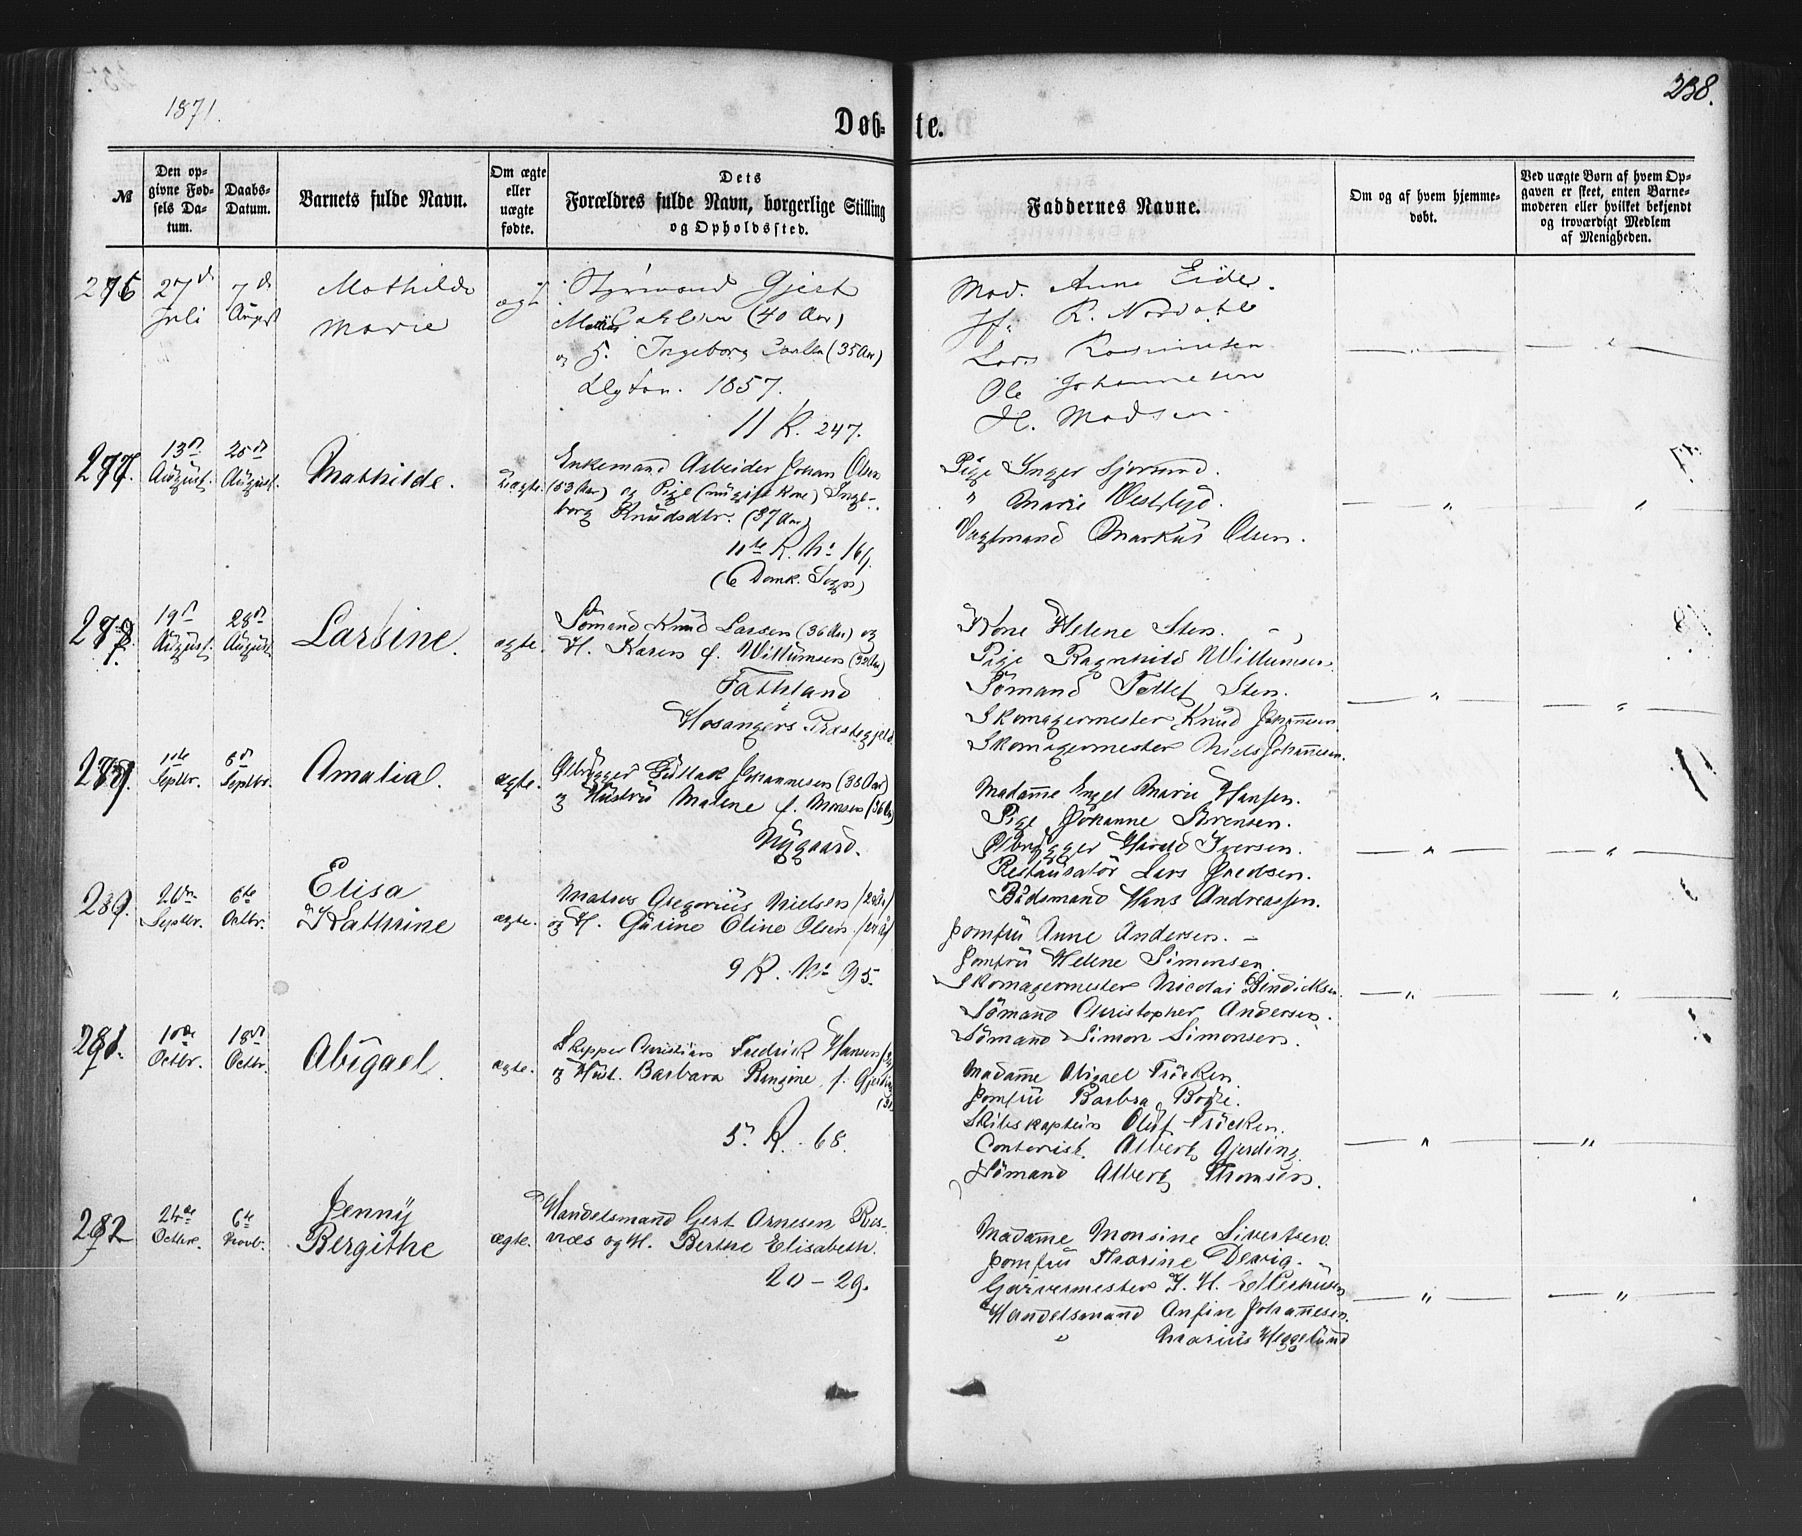 1871.
238.
Døb-
te.
№
Den op-
givne Fød-
sels Da-
tum.
Daabs-
Datum.
Barnets fulde Navn.
Om ægte
eller
uægte
fødte.
Dets
Forældres fulde Navn, borgerlige Stilling
og Opholdssted.
Faddernes Navne.
Om og af hvem hjemme-
døbt.
Ved uægte Børn af hvem Op-
gaven er skeet, enten Barne-
moderen eller hvilket bekjendt
og troværdigt Medlem
af Menigheden.
276
27d
Juli
7d
August
Mathilde
Marie
ægt
Styrmand Gjert
(40 Aar)
og H. Ingeborg (35 Aar)
1857.
11 R. 247.
Mad. Anna Eide.
Jf. R. Nordahl
Lars Rasmusen
Ole Johannesen
H. Madsen.
277.
13d
August.
25d
August.
Mathilde.
uægte.
Enkemand Arbeider Johan Olsen
(53 Aar) og Pige (nugift Kone) Inge-
borg Knudsdtr. (37 Aar)
11te R. No 169.
(Domk. Sogn)
Pige Inger
" Marie
Vagtmand Markus Olsen.
" "
278.
19d
August.
28d
August.
Larsine.
ægte.
Sömand Knud Larsen (36 Aar) og
H. Karen f. Willumsen (35 Aar)
Hosangers Præstegjeld.
Kone Helene Sten.
Pige Ragnhild Willumsen
Sömand Tollef Sten.
Skomagermester Knud Johannesen
Skomagermester Niels Johannesen.
" "
279.
Septbr.
8d
Septbr.
Amalia.
ægte.
Ølbrygger Gullak Johannesen (38 Aar)
og Hustru Malene f. Monsen (36 Aar)
Nygaard.
Madame Engel Marie Hansen.
Pige Johanne Sørensen.
Ølbrygger Iversen.
Restauratör Lars
Bådsmand Hans Andreassen.
" "
280.
Septbr.
6te
Octbr.
Elisa
Kathrine
ægte.
Matros Gregorius Nielsen
og H. Gurine Eline Olsen
9 R. No 95.
Jomfru Anne Andersen.
Jomfru Helene Simonsen
Skomagermester Nicolai Bendicksen.
Sömand Christopher Andersen.
Sömand Simon Simonsen.
" "
281.
10de
Octbr.
18d
Octbr.
Abigael.
ægte.
Skipper Christian Fredrick Hansen
og Hust. Barbara Rengine f. Gjerding
5. R. 68.
Madame Abigael Tröcken.
Jomfru Barbra
Skibskaptein Oluf Tröcken.
Contorist. Albert Gjerding
Sömand Albert Thomsen.
" "
282
24de
Octbr.
6te
Novb.
Jenny
Bergithe
ægte.
Handelsmand Gert Arnesen Ros-
næs og H. Berthe Elisabeth.
20 - 29.
Madame Monsine Sivertsen.
Jomfru Thorine
Garvermester J. H. Ellerhusen
Handelsmand Anfin Johannesen.
" Marius Heggelund
" "